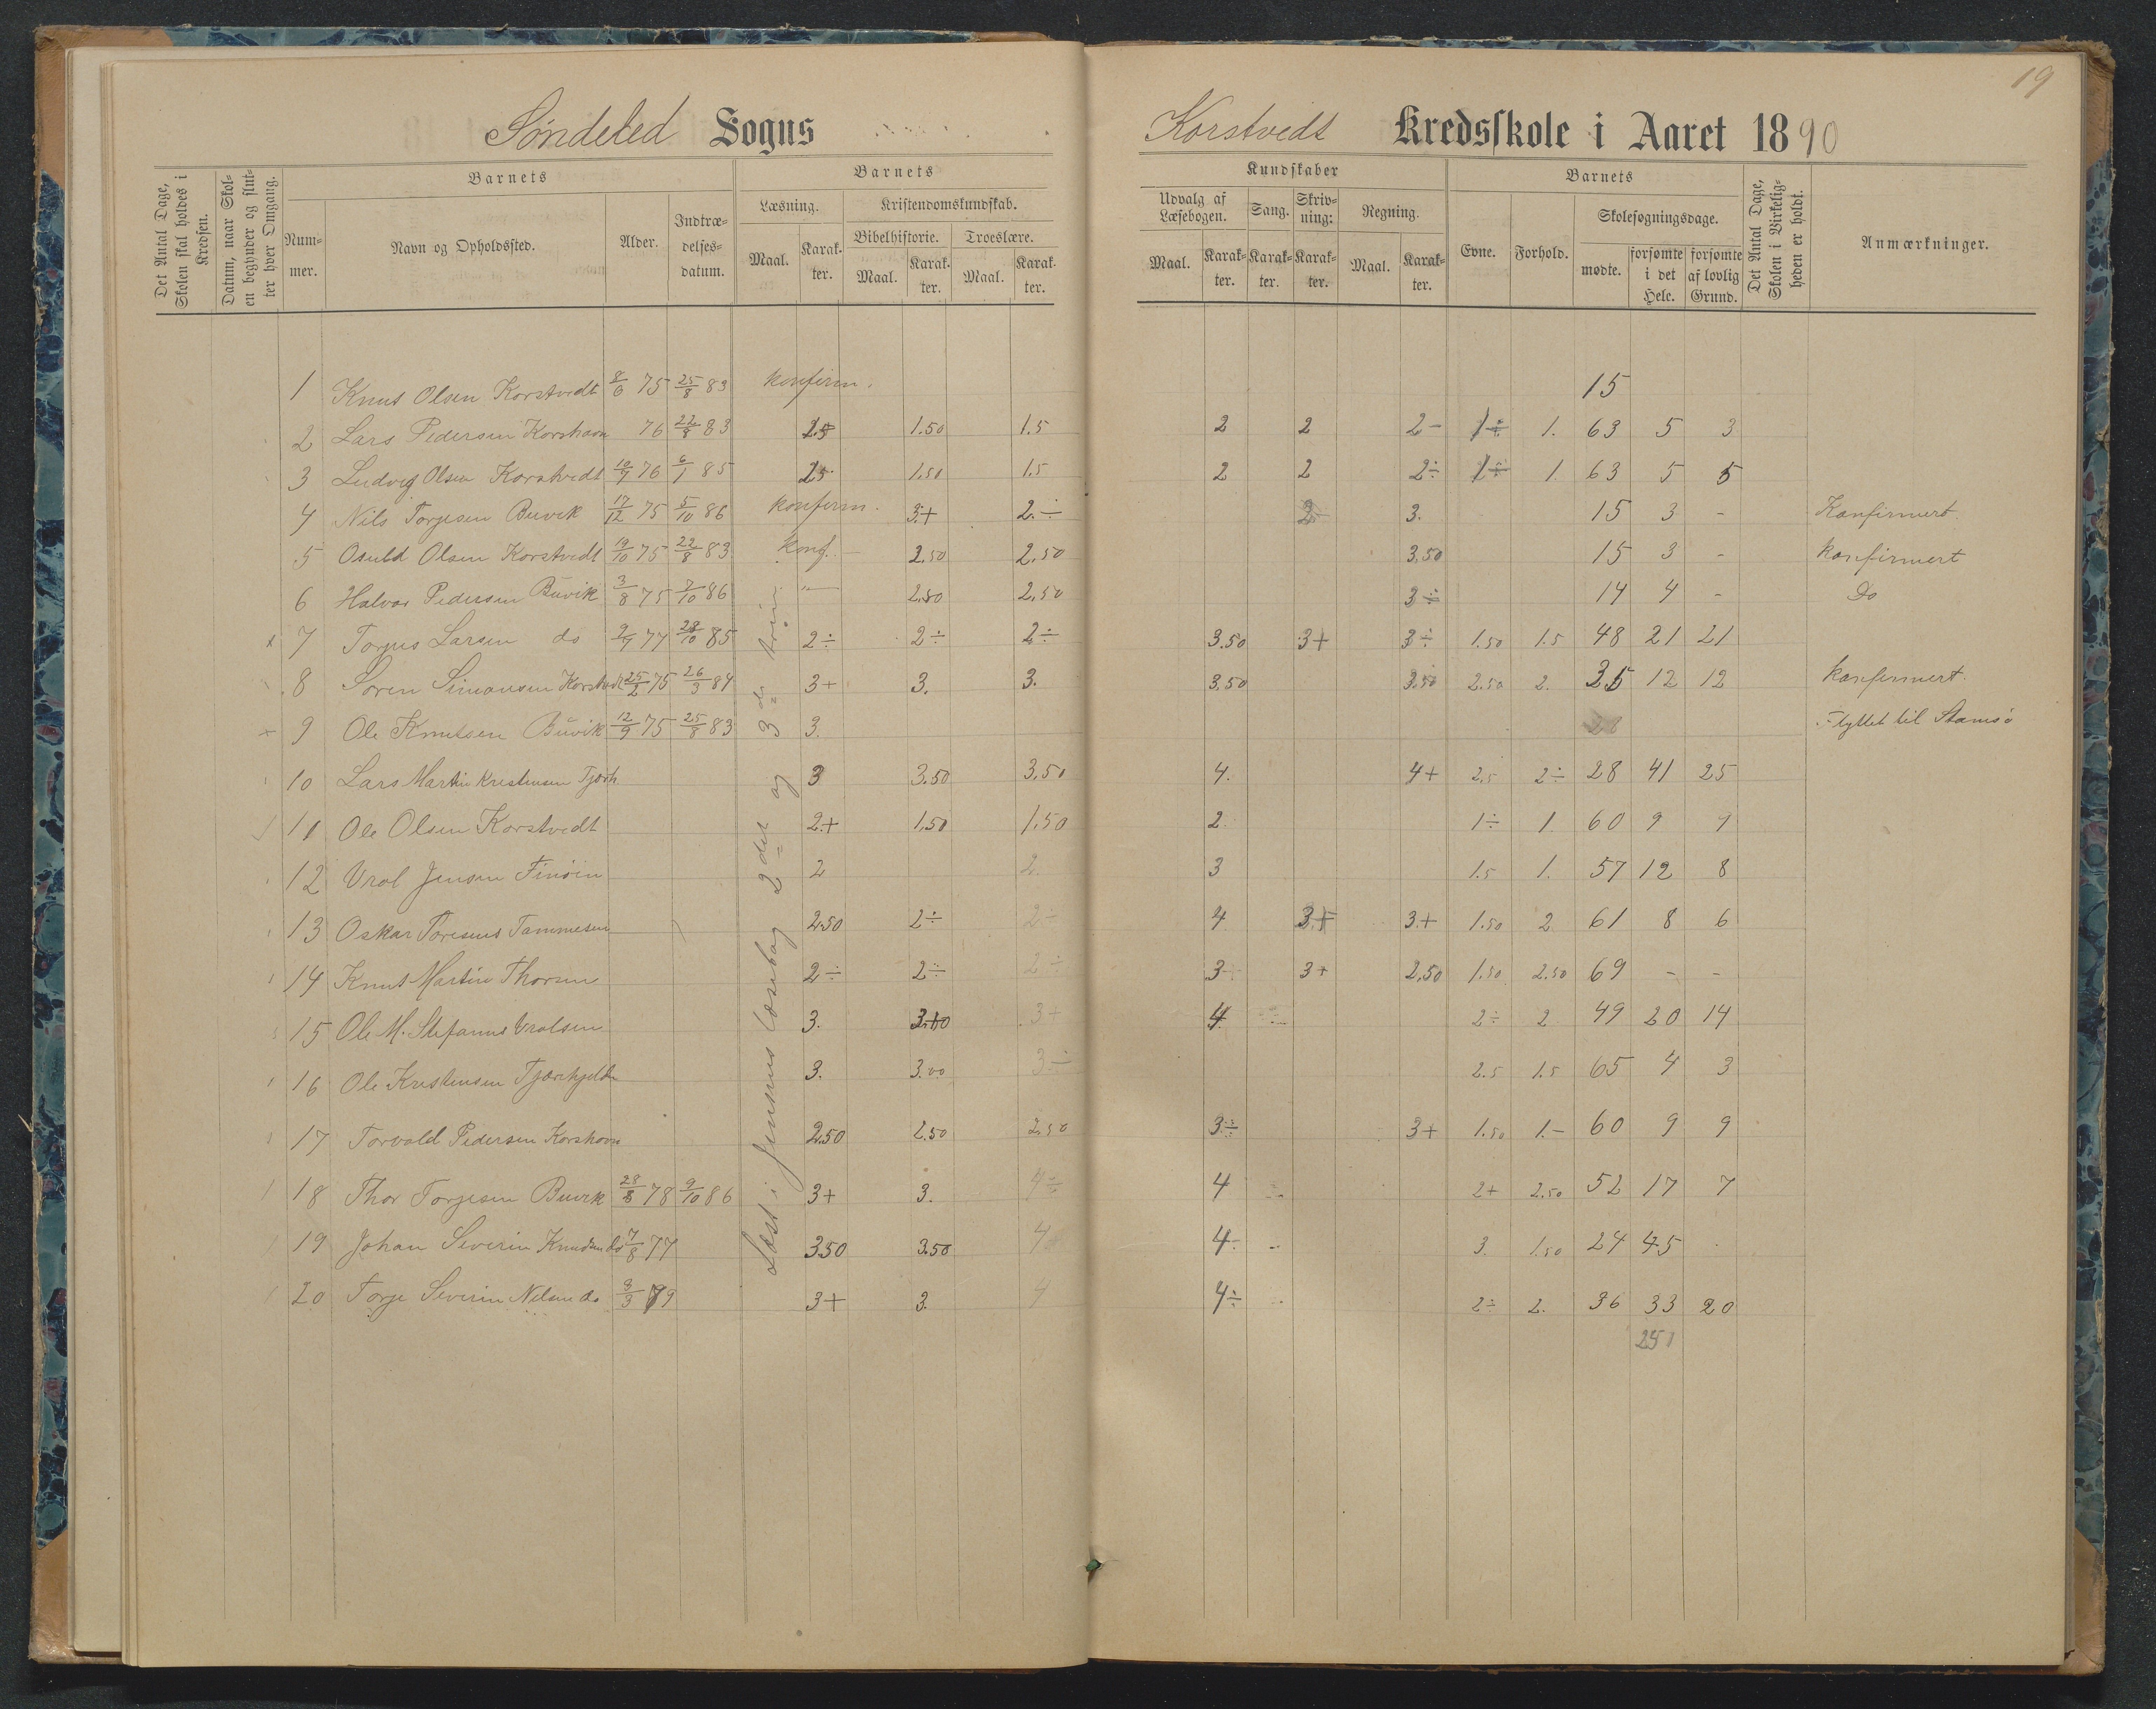 19
Søndeled Sogns
Korstvedt Kredsskole i Aaret 1890
Det Antal Dage, Skolen skal holdes i Kredsen.
Datum, naar Skolen begynder og slutter hver Omgang.
Barnets
Nummer.
Navn og Opholdssted.
Alder.
Indtrædelsesdatum.
Barnets
Læsning.
Maal.
Karakter.
Kristendomskundskab.
Bibelhistorie.
Maal.
Karakter.
Troeslære.
Maal.
Karakter.
Kundskaber
Udvalg af Læsebogen.
Maal.
Karakter.
Sang.
Karakter.
Skrivning:
Karakter.
Regning.
Maal.
Karakter.
Barnets
Evne.
Forhold.
Skolesøgningsdage.
mødte.
forsømte i det Hele.
forsømte af lovlig Grund.
Det Antal Dage, Skolen i Virkeligheden er holdt.
Anmærkninger.
1 Knut Olsen Korstvedt 8/6 75 25/8 83 konfirm. 15
2 Lars Pedersen Korshavn 76 22/8 83 2.5 1.50 1.5 2 2 2- 1÷ 1. 63 5 3
3 Ludvig Olsen Korstvedt 10/9 76 6/1 85 2.5 1.50 1.5 2 2 2÷ 1÷ 1. 63 5 5
4 Nils Torjesen Buvik 17/12 75 5/10 86 konfirm. 3+ 2.÷ 3. 15 3 - Konfirmert
5 Osuld Olsen Korstvedt 19/10 75 22/8 83 konf. - 2.50 2.50 3.50 15 3 - konfirmert
6 Halvor Pedersen Buvik 3/8 75 7/10 86 " 2.50 2.50 3÷ 14 4 - Do
x 7 Torjus Larsen do 9/9 77 28/10 85 2÷ 2÷ 2÷ 3.50 3+ 3÷ 1.50 1.5 48 21 21
8 Soren Simonsen Korstvedt 25/2 75 26/3 84 3+ 3. 3. 3.50 3.50 2.50 2. 35 12 12 konfirmert.
x 9 Ole Knutsen Buvik 12/9 75 25/8 83 3. Flyttet til Stamsö
10 Lars Martin Kristensen Tjørh 3 3.50 3.50 4. 4+ 2.5 2÷ 28 41 25
11 Ole Olsen Korstvedt 2+ 1.50 1.50 2. 1÷ 1. 60 9 9
12 Vrol Jensen Finöen 2 2. 3 1.5 1. 57 12 8
13 Oskar Toresius Tammesen 2.50 2÷ 2÷ 4 3+ 3+ 1.50 2 61 8 6
14 Knut Martin Thorsen 2÷ 2÷ 2÷ 3- 3+ 2.50 1.50 2.50 69 - -
15 Ole M. Stefanus Vrolsen 3. 3+ 4 2÷ 2 49 20 14
16 Ole Kristensen Tjørhjelde 3. 3.00 3÷ 2.5 1.5 65 4 3
17 Torvald Pedersen Korshavn 2.50 2.50 2.50 3÷ 3+ 1.50 1.- 60 9 9
18 Thor Torjesen Buvik 28/8 78 9/10 86 3+ 3. 4÷ 4 2+ 2.50 52 17 7
19 Johan Severin Knudsen do 7/8 77 3.50 3.50 4 4÷ 3. 1.50 24 45
20 Torje Severin Nilsen do 3/3 79 3+ 3. 4 4÷ 2÷ 2. 36 33 20
251
Læst i Jensens læsebog 2det og 3de trin.